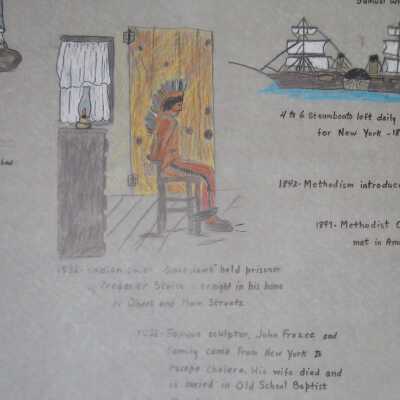 Samuel
4 to 6 Steamboats left daily
for New York - 18
1842- Methodism introduce
1899- Methodist C
met in Am
1832- Indian held prisoner
by Frederick in his home
at Obert and Main Streets
1832- Famous sculptor, John Frazee and
family came from New York to
escape cholera. His wife died and
is buried in Old School Baptist